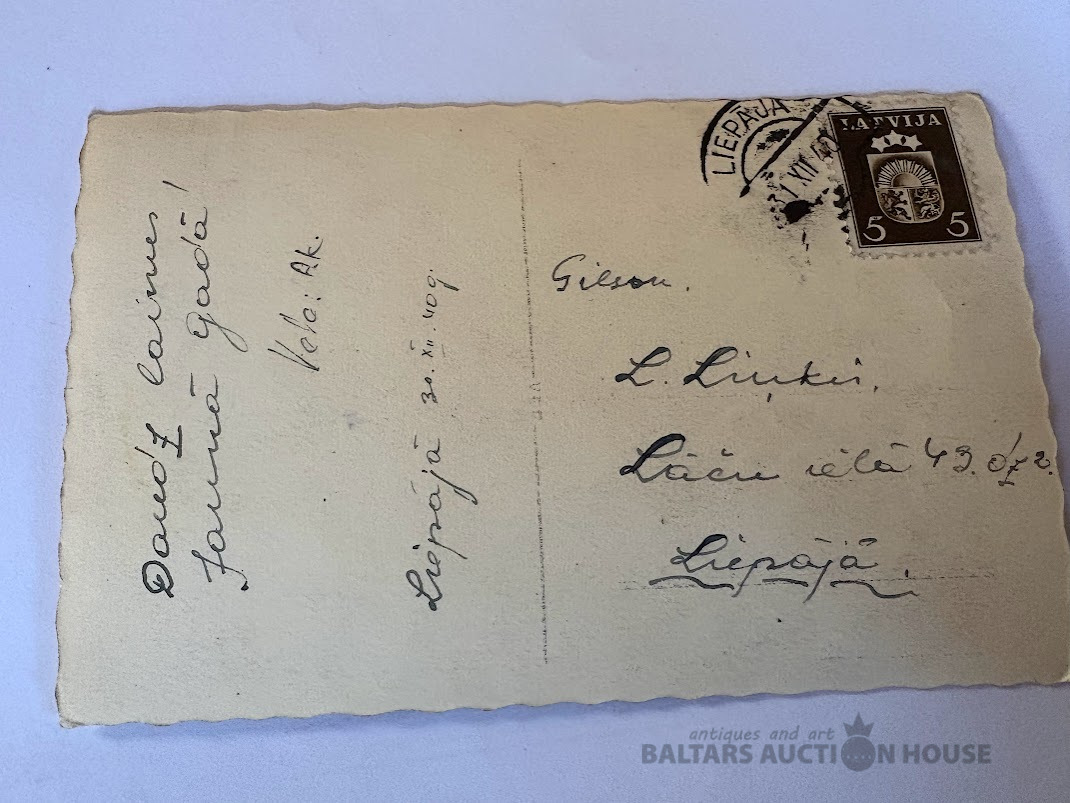 Daudz laimes
Jaunā gadā!
Vēlē: Ak.
Liepājā 30. XII. 40g.
LIEPĀJA
31 XII 40
LATVIJA
5 5
L. Liņķis,
Lāču ielā 43. dz 2.
Liepājā.
antiques and art
BALTARS AUCTION HOUSE